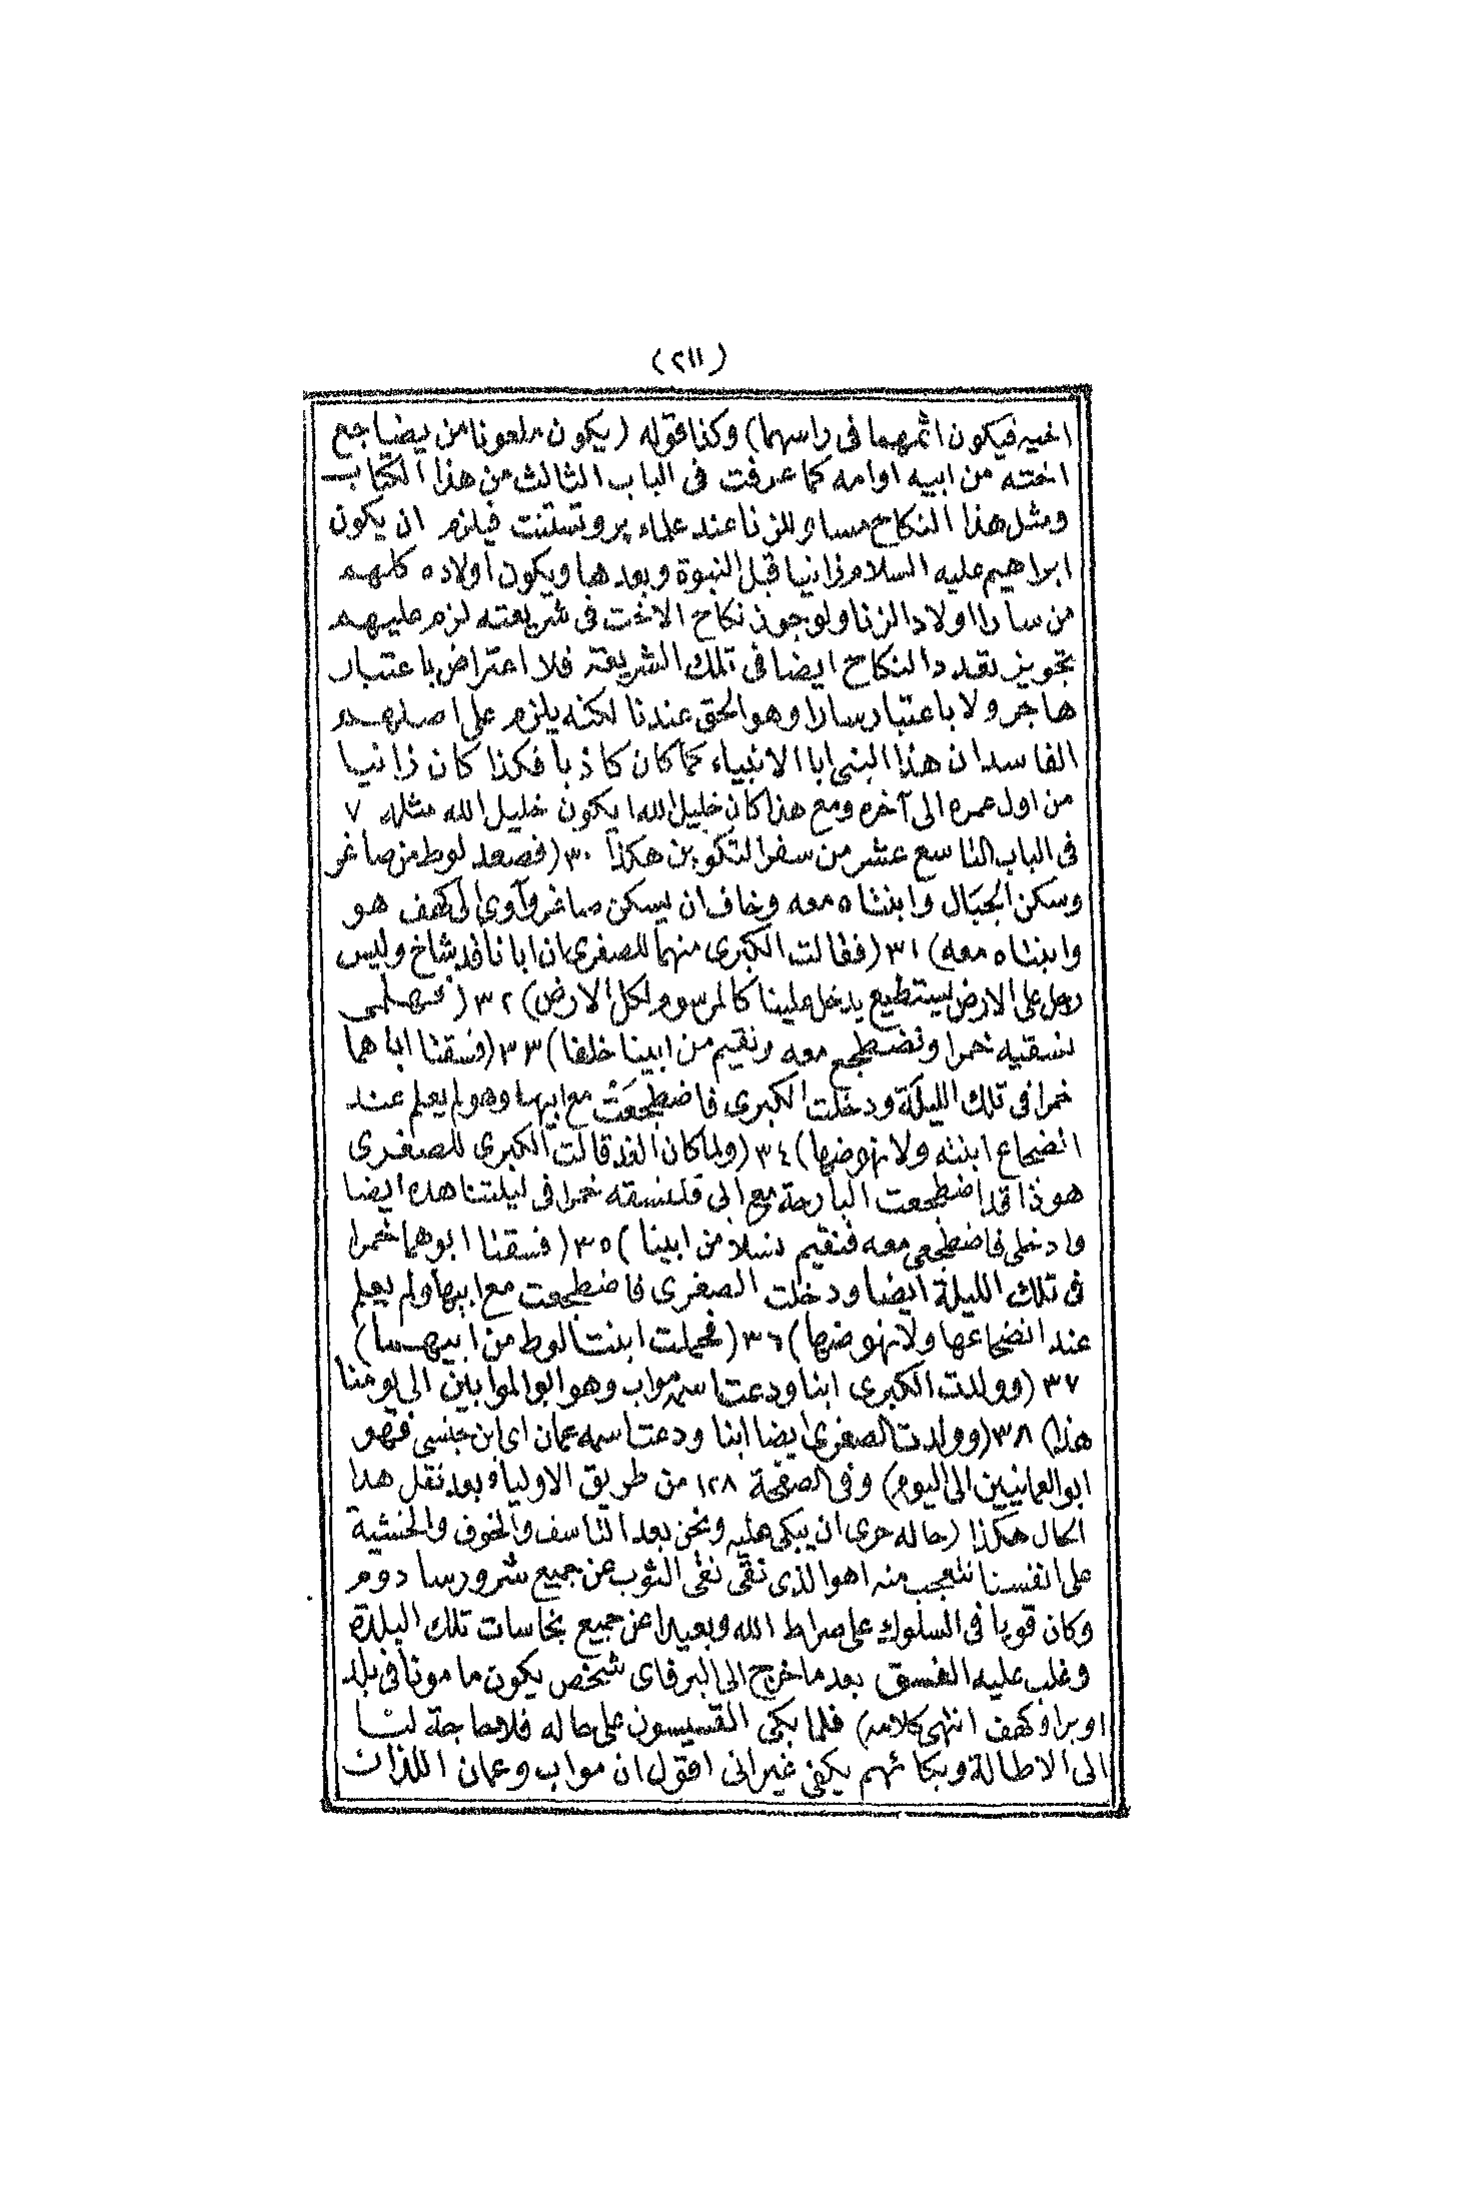 (٢١١)
اخيه فيكون اثمهما فى راسهما) وكذا قوله (يكون ملعونا من يضاجع
اخته من ابيه او امه كما عرفت فى الباب الثالث من هذا الكتاب
ومثل هذا النكاح مساو للزنا عند علماء پروتستنت فيلزم ان يكون
ابراهيم عليه السلام زانيا قبل النبوة وبعدها ويكون اولاده كلهم
من سارا اولاد الزنا ولو جوز نكاح الاخت فى شريعته لزم عليهم
تجويز تعدد النكاح ايضا فى تلك الشريعة فلا اعتراض باعتبار
هاجر ولا باعتبار سارا وهو الحق عندنا لكنه يلزم على اصلهم
الفاسد ان هذا النبى ابا الانبياء كما كان كاذبا فكذا كان زانيا
من اول عمره الى آخره ومع هذا كان خليل الله ايكون خليل الله مثله ٧
فى الباب التاسع عشر من سفر التكوين هكذا ٣٠ (فصعد لوط من صاغر
وسكن الجبال وابنتاه معه وخاف ان يسكن صاغر وآوى الى كهف هو
وابنتاه معه) ٣١ (فقالت الكبرى منهما للصغرى ان ابانا قد شاخ وليس
رجل على الارض يستطيع يدخل علينا كالمرسوم لكل الارض) ٣٢ (فهلمى
نسقيه خمرا ونضطجع معه ونقيم من ابينا خلفا) ٣٣ (فسقتا اباهما
خمرا فى تلك الليلة ودخلت الكبرى فاضطجعت مع ابيها وهو لم يعلم عند
انضجاع ابنته ولا نهوضها) ٣٤ (ولما كان الغد قالت الكبرى للصغرى
هوذا قد اضطجعت البارحة مع ابى فلنسقه خمرا فى ليلتنا هذه ايضا
وادخلى فاضطجعى معه فنقيم نسلا من ابينا) ٣٥ (فسقتا ابوهما خمرا
فى تلك الليلة ايضا ودخلت الصغرى فاضطجعت مع ابيها ولم يعلم
عند انضجاعها ولا نهوضها) ٣٦ (فحملت ابنتا لوط من ابيهما)
٣٧ (وولدت الكبرى ابنا ودعت اسمه مواب وهو ابو الموابيين الى يومنا
هذا) ٣٨ (وولدت الصغرى ايضا ابنا ودعت اسمه عمان اى ابن جنسى فهو
ابو العمانيين الى اليوم) وفى الصفحة ١٢٨ من طريق الاولياء بعد نقل هذا
الحال هكذا (حاله حرى ان يبكى عليه ونحن بعد التاسف والخوف والخشية
على انفسنا نتعجب منه اهو الذى نقى نقى الثوب عن جميع شرور سادوم
وكان قويا فى السلوك على صراط الله وبعيدا عن جميع نجاسات تلك البلدة
وغلب عليه الفسق بعد ما خرج الى البر فاى شخص يكون مامونا فى بلد
او بر او كهف انتهى كلامه) فلما بكى القسيسون على حاله فلا حاجة لنا
الى الاطالة وبكائهم يكفى غير انى اقول ان مواب وعمان اللذان